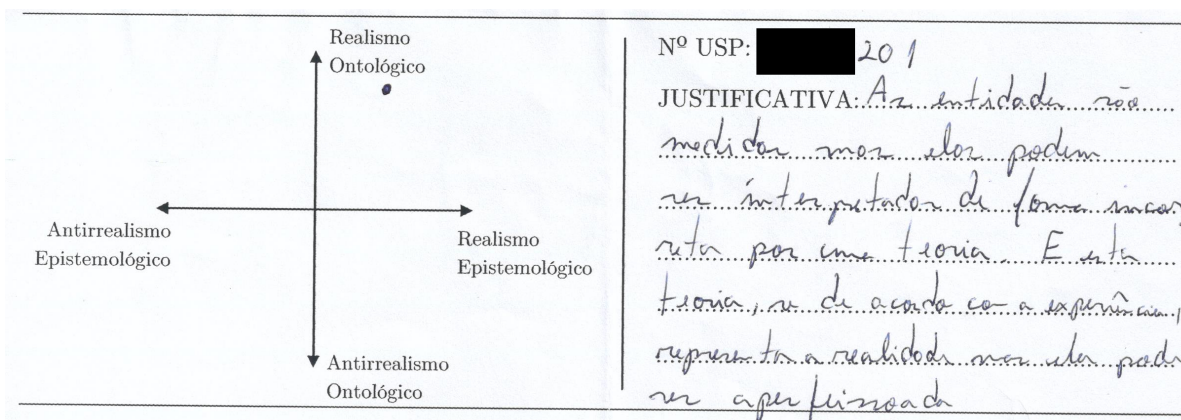 Realismo
Ontológico
Antirrealismo
Epistemológico
Realismo
Epistemológico
Antirrealismo
Ontológico
Nº USP: 201
JUSTIFICATIVA: As entidades são
medidas mas elas podem
ser interpretadas de forma incor
reta por uma teoria. E esta
teoria, se de acordo com a experiência,
representa a realidade mas ela pode
ser aperfeissoada